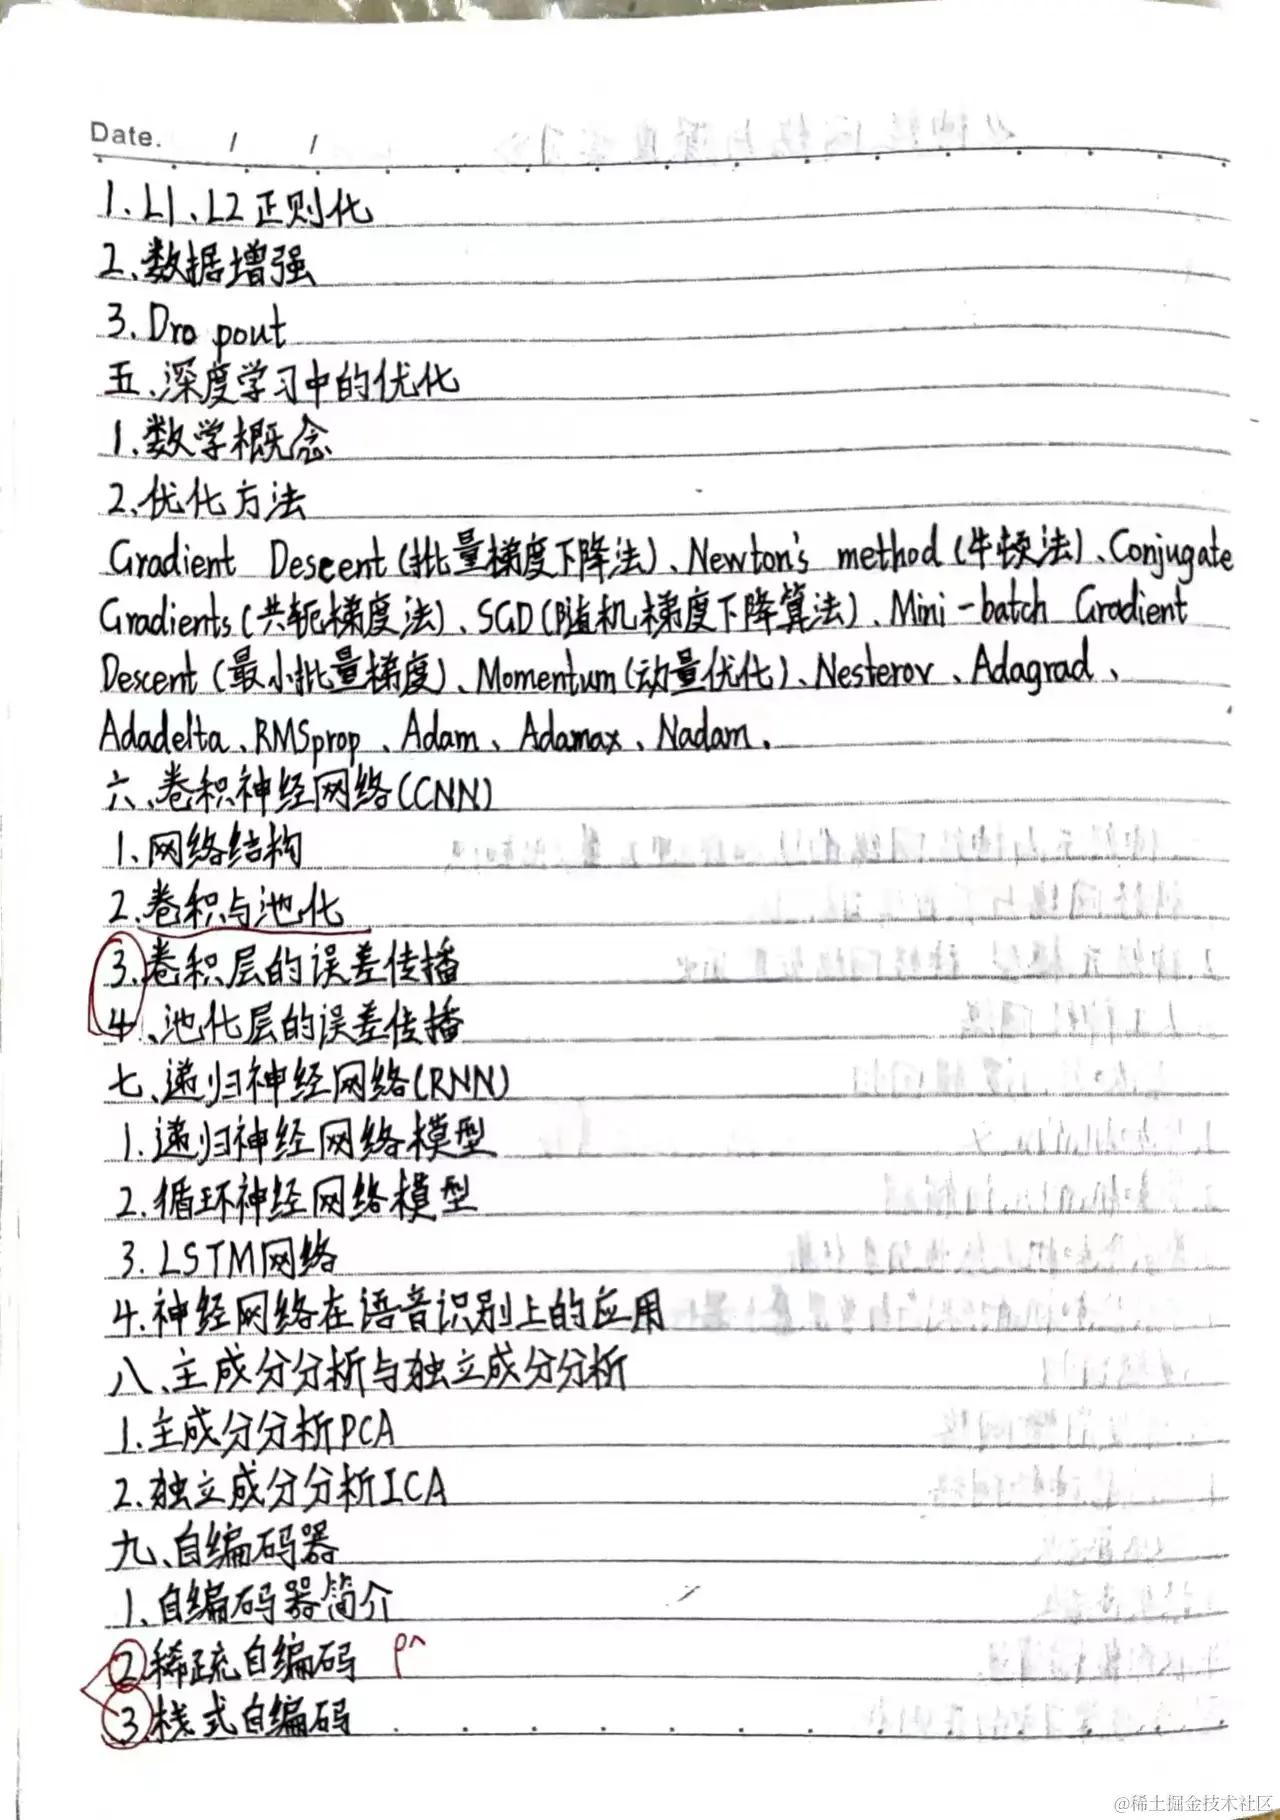 Date.    /    /
1、L1、L2正则化
2、数据增强
3、Dropout
五、深度学习中的优化
1、数学概念
2、优化方法
Gradient Descent(批量梯度下降法)、Newton's method(牛顿法)、Conjugate
Gradients(共轭梯度法)、SGD(随机梯度下降算法)、Mini-batch Gradient
Descent(最小批量梯度)、Momentum(动量优化)、Nesterov、Adagrad、
Adadelta、RMSprop、Adam、Adamax、Nadam、
六、卷积神经网络(CNN)
1、网络结构
2、卷积与池化
3、卷积层的误差传播
4、池化层的误差传播
七、递归神经网络(RNN)
1、递归神经网络模型
2、循环神经网络模型
3、LSTM网络
4、神经网络在语音识别上的应用
八、主成分分析与独立成分分析
1、主成分分析PCA
2、独立成分分析ICA
九、自编码器
1、自编码器简介
2、稀疏自编码
3、栈式自编码
@稀土掘金技术社区